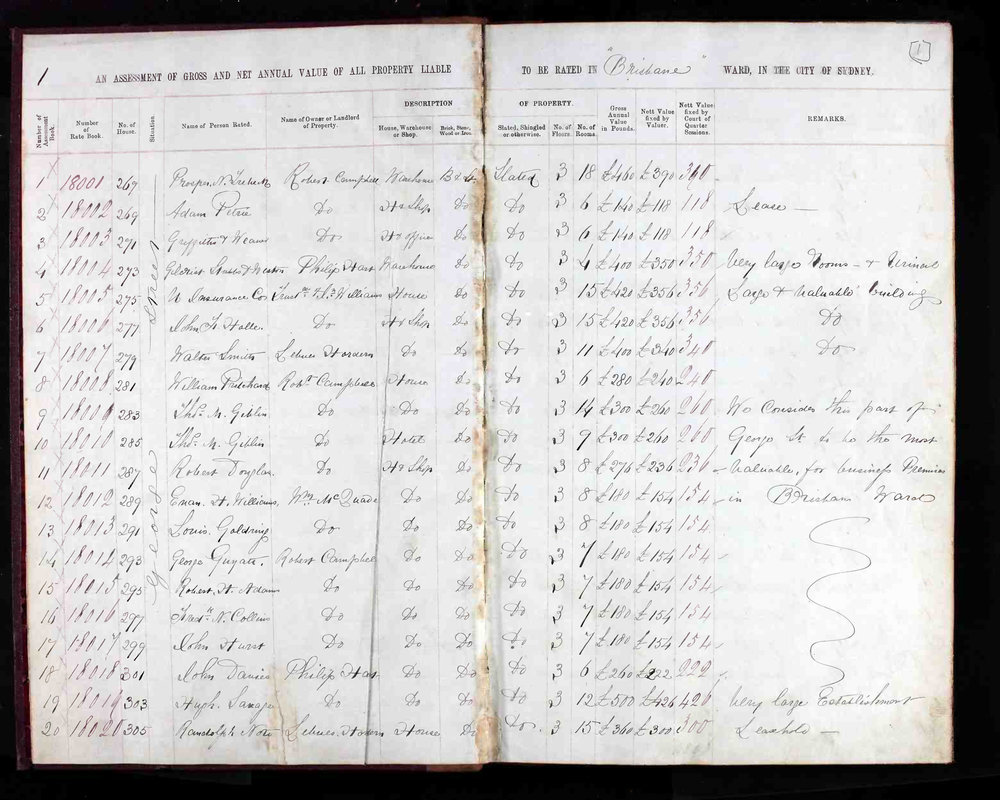 1 AN ASSESSMENT OF GROSS AND NET ANNUAL VALUE OF ALL PROPERTY LIABLE TO BE RATED IN "Brisbane" WARD, IN THE CITY OF SYDNEY. 1
DESCRIPTION OF PROPERTY.
Number of Assessment Book. Number of Rate Book. No. of House. Situation. Name of Person Rated. Name of Owner or Landlord of Property. House, Warehouse or Shop. Brick, Stone, Wood or Iron. Slated, Shingled or otherwise. No. of Floors. No. of Rooms. Gross Annual Value in Pounds. Nett Value fixed by Valuer. Nett Value fixed by Court of Quarter Sessions. REMARKS.
George Street
1 18001 267 Prosper N. Robert Campbell Warehouse Slated 3 18 £460 £390
2 18002 269 Adam Petrie Do Hs Shop Do Do 3 6 £140 £118 118 Lease —
3 18003 271 Griffiths & Weaver Do Hs office Do Do 3 6 £140 £118 118
4 18004 273 Gilchrist Philip Hart Warehouse Do Do 3 4 £400 £350 350 Very large Rooms — & Urinal
5 18005 275 U Insurance Co Williams House Do Do 3 15 £420 £356 356 Large & Valuable building
6 18006 277 John Do Hs Shop Do Do 3 15 £420 £356 356 Do
7 18007 279 Walter Smith Lebeus Hordern Do Do Do 3 11 £400 £340 340 Do
8 18008 281 William Pritchard Robt Campbell House Do Do 3 6 £280 £240 240
9 18009 283 Thos. M. Giblin Do Do Do Do 3 14 £300 £260 260 We Consider this part of
10 18010 285 Thos. M. Giblin Do Hotel Do Do 3 9 £300 £260 260 George St to be the most
11 18011 287 Robert Douglas Do Hs Shop Do Do 3 8 £276 £236 236 Valuable, for business Premises
12 18012 289 Evan. H. Williams Wm McQuade Do Do Do 3 8 £180 £154 154 in Brisbane Ward
13 18013 291 Louis Goldring Do Do Do Do 3 8 £180 £154 154
14 18014 293 George Guyatt. Robert Campbell Do Do Do 3 7 £180 £154 154
15 18015 295 Robert. H. Adams Do Do Do Do 3 7 £180 £154 154
16 18016 297 N. Collins Do Do Do Do 3 7 £180 £154 154
17 18017 299 John Hurst Do Do Do Do 3 7 £180 £154 154
18 18018 301 John Davies Philip Hart Do Do Do 3 6 £260 £222 222
19 18019 303 Hugh Do Do Do Do 3 12 £500 £426 426 Very large Establishment
20 18020 305 Randolph Nott Lebeus Hordern House Do Do 3 15 £360 £300 300 Leasehold —